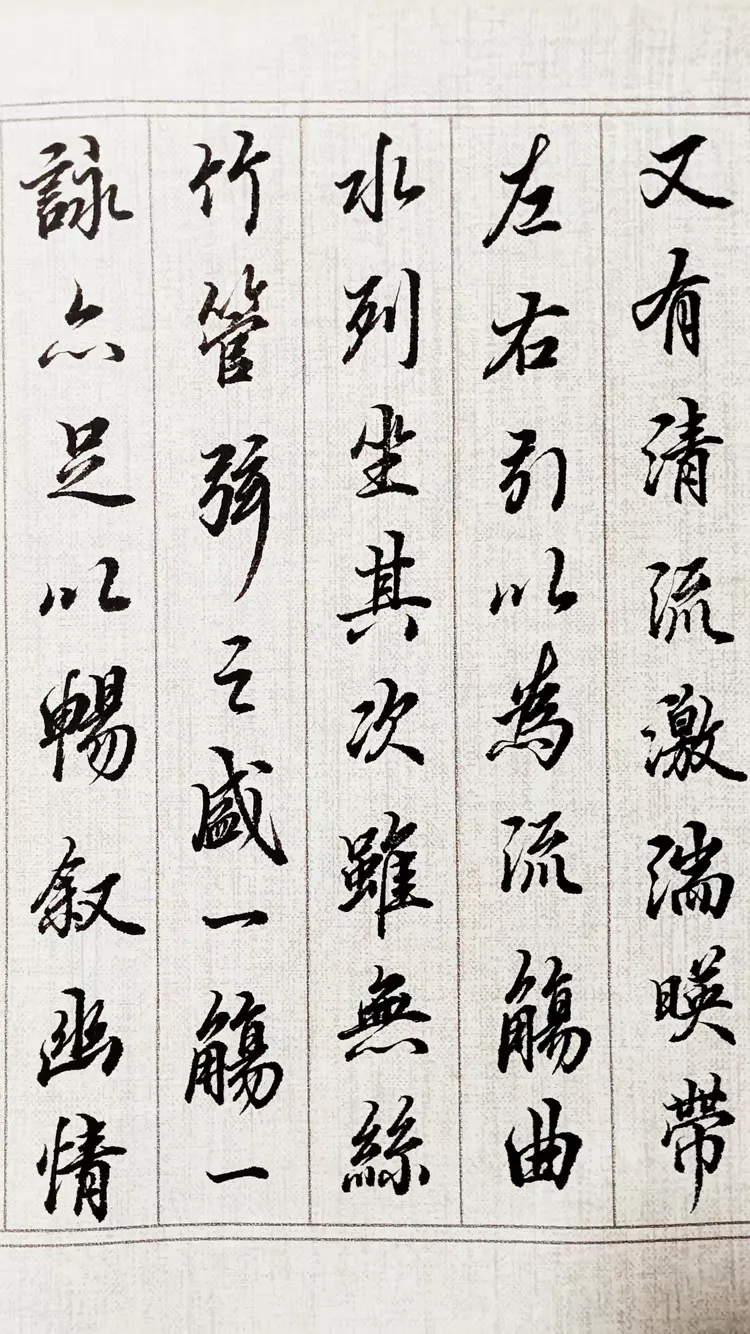 又有清流激湍暎帶
左右引以為流觴曲
水列坐其次雖無絲
竹管弦之盛一觴一
詠亦足以暢叙幽情